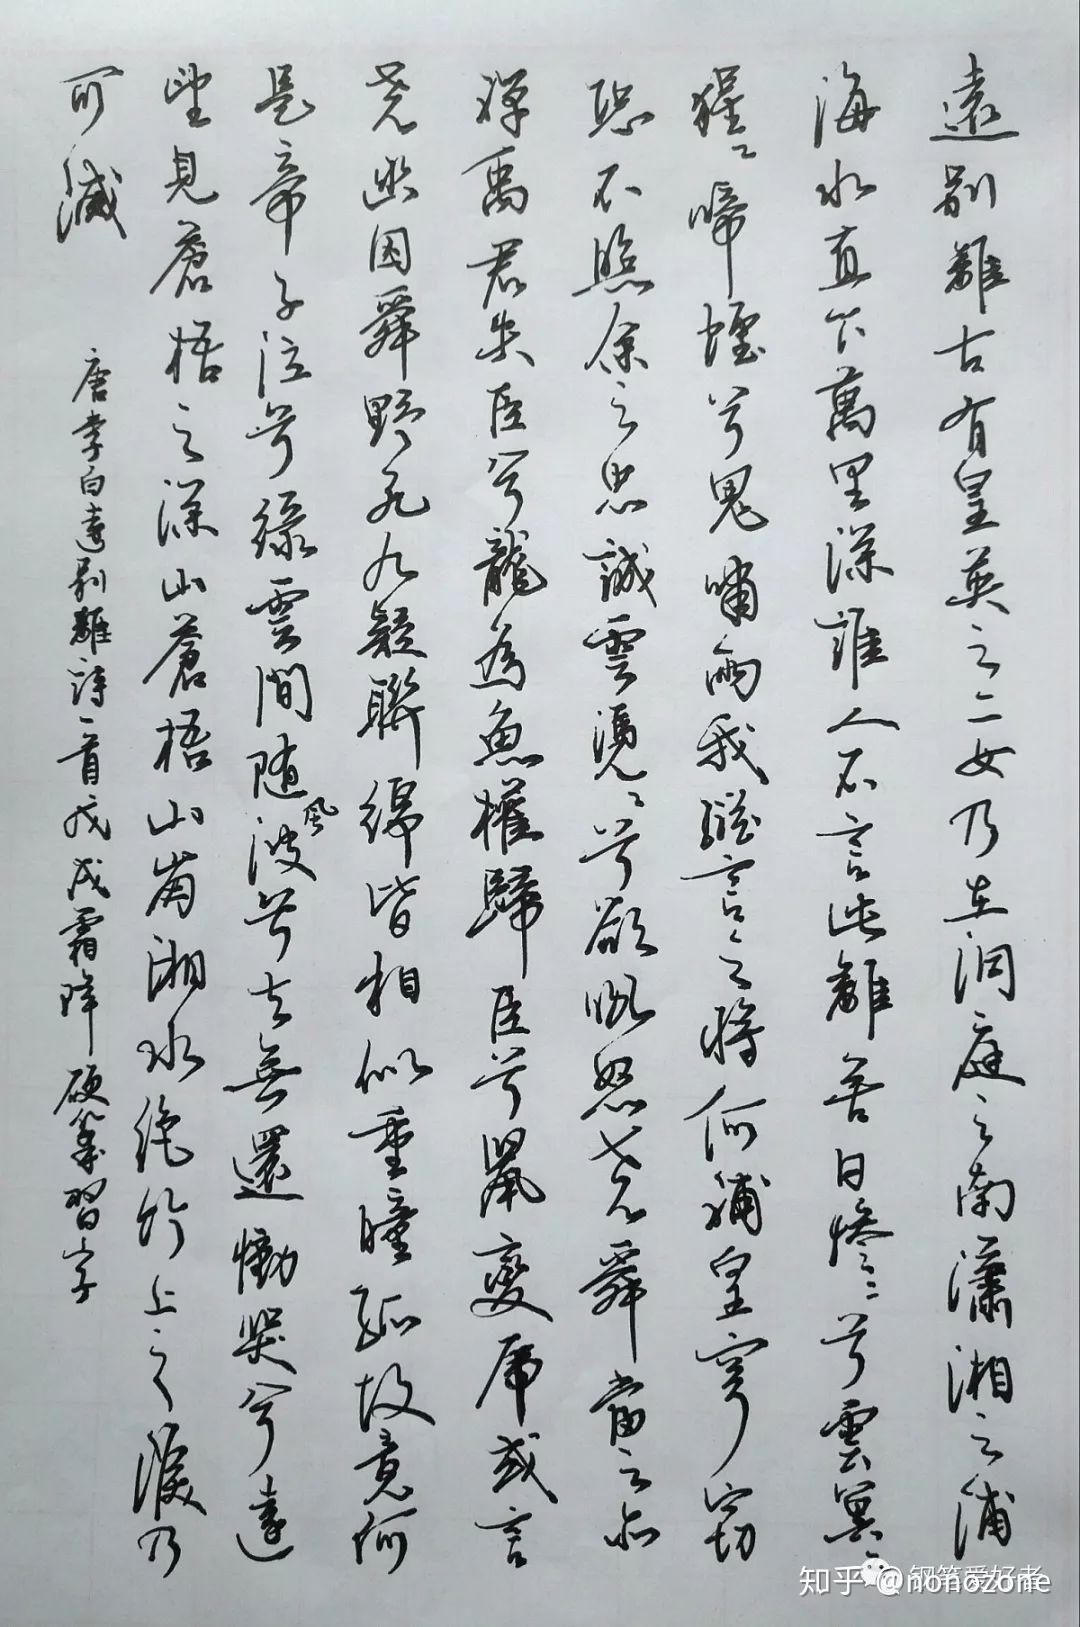 遠別離古有皇英之二女乃在洞庭之南瀟湘之浦
海水直下萬里深誰人不言此離苦日慘〻兮雲冥〻
猩〻啼煙兮鬼嘯雨我縱言之將何補皇穹竊
恐不照余之忠誠雲憑〻兮欲吼怒堯舜當之亦
禪禹君失臣兮龍為魚權歸臣兮鼠變虎或言
堯幽囚舜野死九疑聯綿皆相似重瞳孤墳竟何
是帝子泣兮綠雲間随風波兮去無還慟哭兮遠
望見蒼梧之深山蒼梧山崩湘水絶竹上之淚乃
可滅
唐李白遠別離詩一首戊戌霜降硬筆習字
知乎 @nonozone
钢笔爱好者